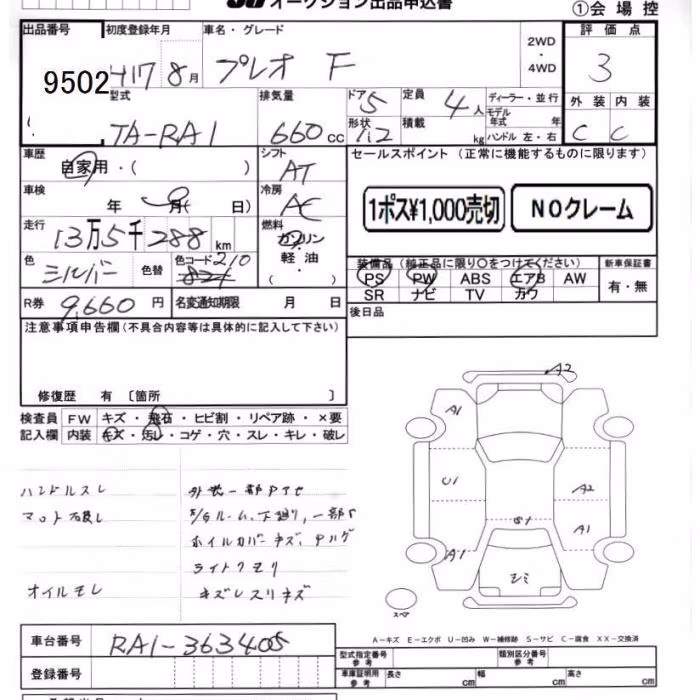 オークション出品申込書
①会場控
出品番号 初度登録年月 車名・グレード 2WD・4WD 評価点
9502 H17 8月 プレオ F 3
型式 排気量 ドア 5 定員 4人 ディーラー・並行 外装 内装
TA-RA1 660cc 形状 積載 kg モデル年式 年 ハンドル 左・右 C C
車歴 シフト セールスポイント (正常に機能するものに限ります)
自家用・( ) AT
車検 冷房 1ポス¥1,000売切 NOクレーム
年 月( 日) AC
走行 燃料
13万5千288km ガソリン・軽油・( )
装備品 (純正品に限り〇をつけてください) 新車保証書
色 色替 色コード 210 PS PW ABS エアB AW 有・無
シルバー SR ナビ TV カワ
R券 9,660円 名変通知期限 月 日 後日品
注意事項申告欄(不具合内容等は具体的に記入して下さい)
修復歴 有 〔箇所 〕
検査員 FW キズ・飛石・ヒビ割・リペア跡・×要
記入欄 内装 キズ・汚レ・コゲ・穴・スレ・キレ・破レ
ハンドルスレ
オイルモレ
外装一部
ホイルカバーキズ
ライトクモリ
A2
A1
U1
A2
A1
A1
スペア
A-キズ E-エクボ U-凹み W-補修跡 S-サビ C-腐食 XX-交換済
車台番号 RA1-363405
型式指定番号 参考 類別区分番号 参考
登録番号 車庫証明用 参考 長さ cm 幅 cm 高さ cm